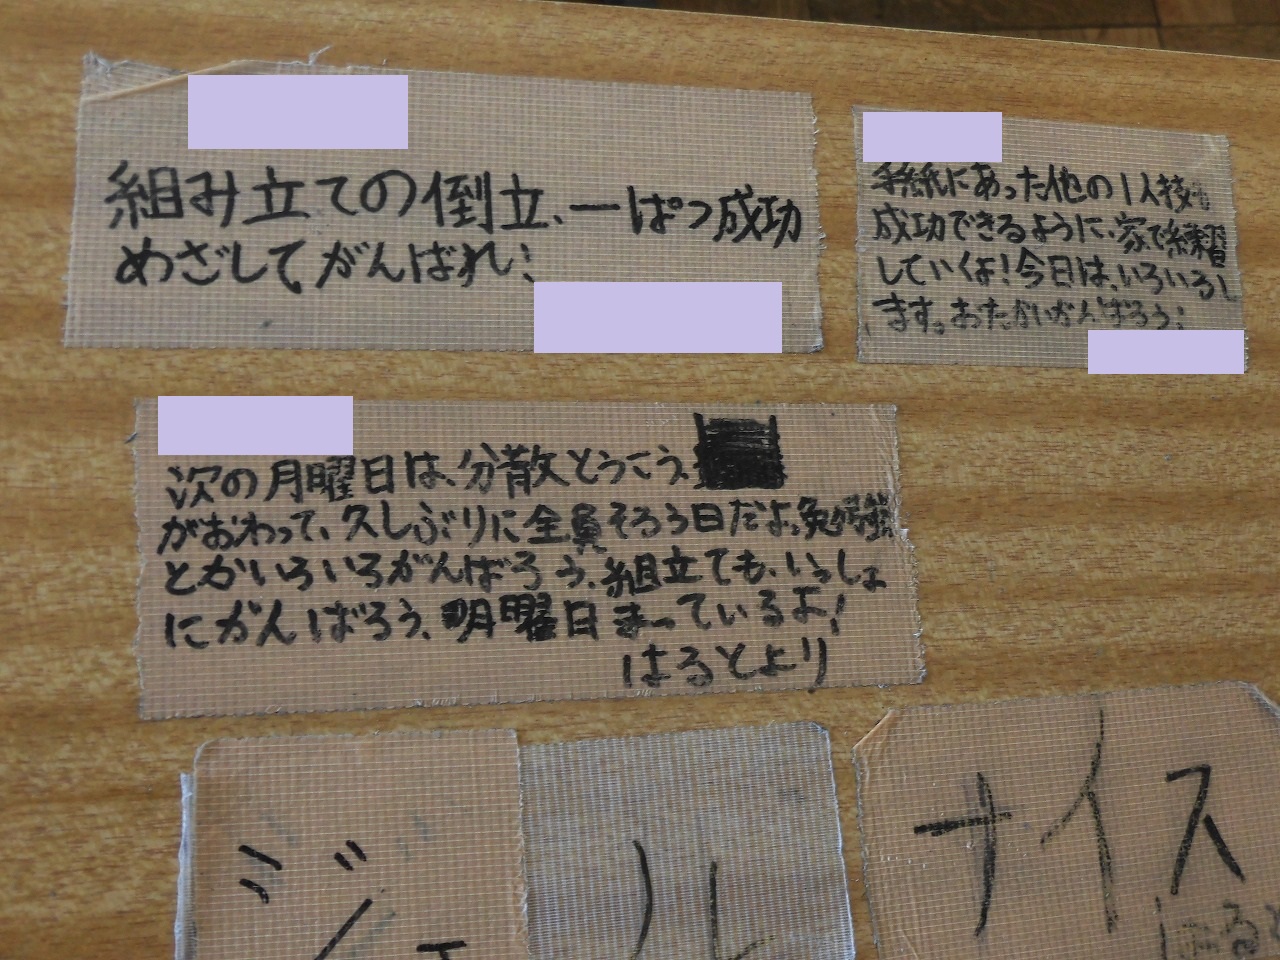 組み立ての倒立、一ぱつ成功
めざしてがんばれ!
手紙にあった他の1人技も
成功できるように、家で練習
していくよ!今日は、いろいろし
ます。おたがいがんばろう!
次の月曜日は、分散とうこう、
がおわって、久しぶりに全員そろう日だよ。勉強
とかいろいろがんばろう、組立ても、いっしょ
にがんばろう、明曜日まっているよ!
はるとより
ジェ
ル
ナイス
はると